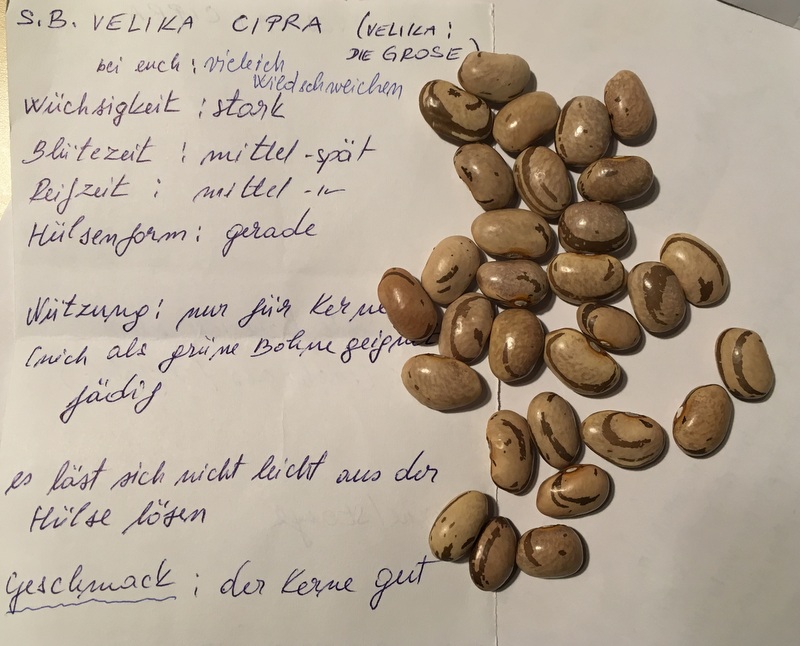 S.B. VELIKA CIPRA (VELIKA:
DIE GROSE)
bei euch: vieleich
wiedschweichen
Wüchsigkeit: stark
Blütezeit: mittel-spät
Reifzeit: mittel -"-
Hülsenform: gerade
Nützung: nur für Kerne
(nich als grüne Bohne geign
fädig
es läst sich nicht leicht aus der
Hülse lösen
Geschmack: der Kerne gut